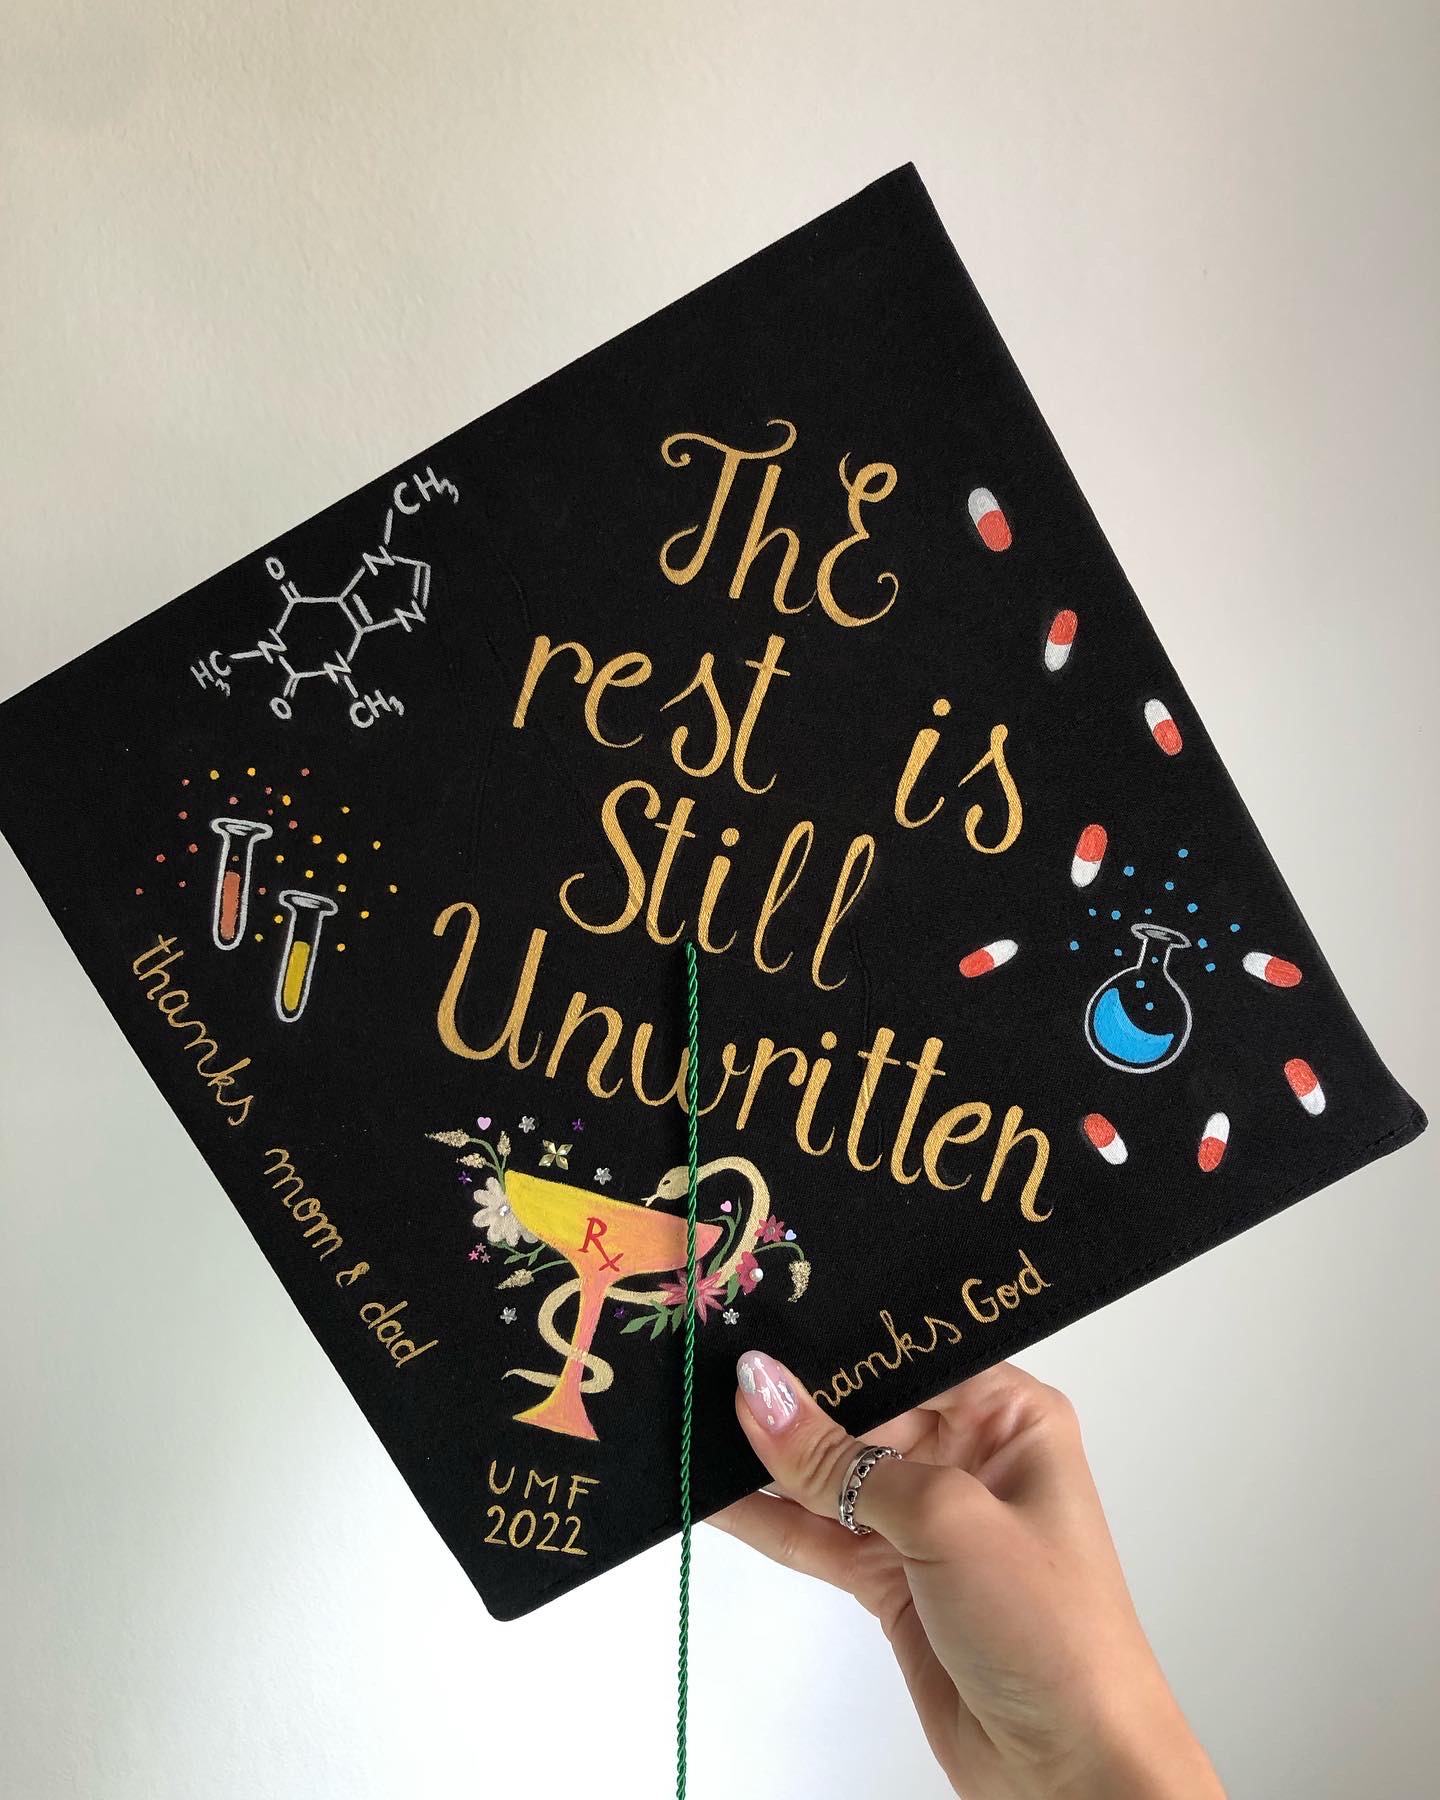 ThE
rest is
Still
Unwritten
CH3
N
N
O
N
H3C
N
O
CH3
thanks mom & dad
Rx
hanks God
UMF
2022